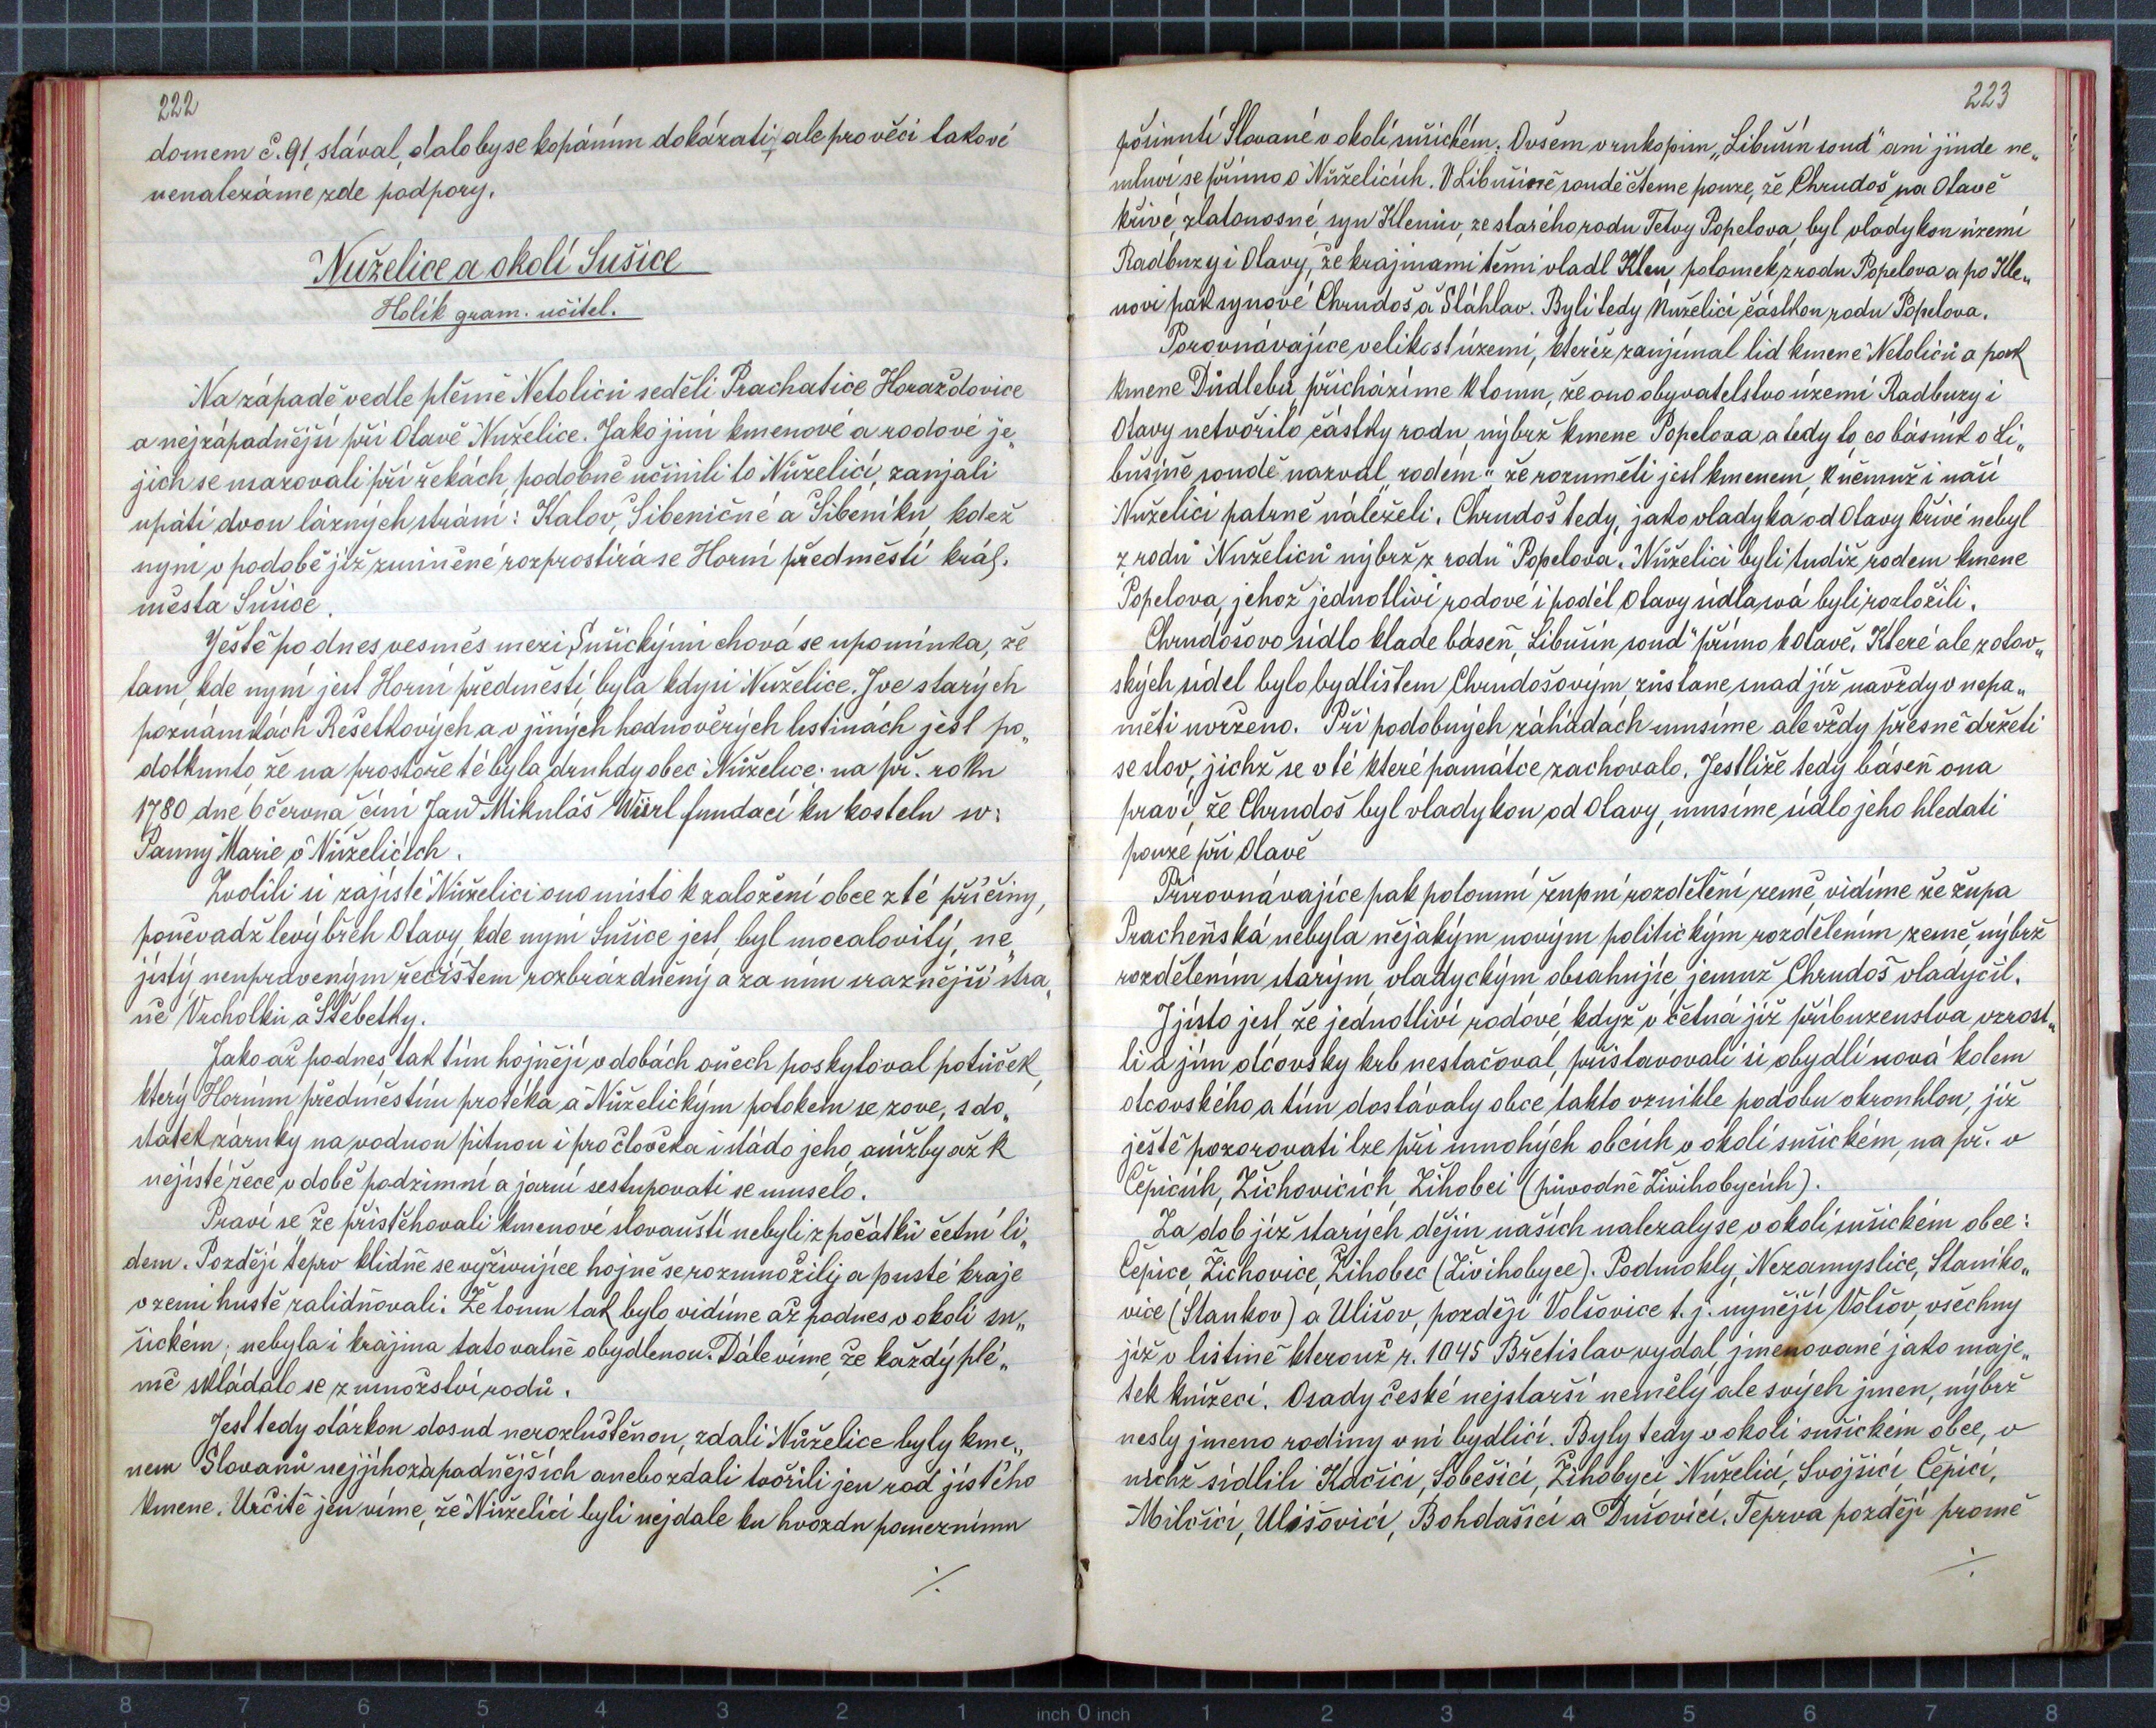 222
domem č. 91, stával, dalo by se kopáním dokázati, ale pro věci takové
nenalezáme zde podpory.
Nuželice a okolí Sušice
Holík gram. učitel.
Na západě vedle plémě Netoliců seděli Prachatice Horažďovice
a nejzápadnější při Otavě Nuželice. Jako jiní kmenové a rodové je„
jich se mazovali při řekách, podobně učinili to Nůželicí, zanjali
upátí dvou lázných strání: Kalov, Šibeničné a Šibeníku, kdež
nyní v podobě již zmíněné rozprostírá se Horní předměstí král.
města Sušice.
Ještě po dnes vesměs mezi Sušickými chová se upomínka, že
tam, kde nyní jest Horní předměstí, byla kdysi Nuželice. I ve starých
poznámkách Rešetkových a v jiných hodnověrých listinách jest po„
dotknuto, že na prostoře té byla druhdy obec Nůželice; na př. roku
1780 dne 6 června činí Jan Mikuláš Würl fundaci ku kostelu sv:
Panny Marie v Nůželicích.
Zvolili si zajisté Nůželici ono místo k založení obce z té příčiny,
poněvadž levý břeh Otavy, kde nyní Sušice jest, byl mocalovitý, ne„
jistý, neupraveným řečištem rozbrázdněný a za ním sraznější stra„
ně Vrcholku a Stěbetky.
Jako až podnes, tak tím hojněji v dobách oněch poskytoval potůček,
který Horním předměstím protéká a Nůželickým potokem se zove, s do„
statek záruky na vodnou pitnou i pro člověka i stádo jeho, anižby až k
nejisté řece v době podzimní a jarní sestupovati se muselo.
Praví se, že přistěhovali kmenové slovanští nebyli z počátku četni li„
dem. Později teprv klidně se vyživujíce hojně se rozmnožily a pusté kraje
v zemi hustě zalidňovali. Že tomu tak bylo, vidíme až podnes v okolí su„
šickém; nebyla i krajina tato valně obydlenou. Dále víme, že každý plé„
mě skládalo se z množství rodů.
Jest tedy otázkou dosud nerozluštěnou, zdali Nůželice byly kme„
nem Slovanů nejjihozápadnějších anebo zdali tvořili jen rod jistého
kmene. Určitě jen víme, že Nůželicí byli nejdale ku hvozdu pomeznímu
⁒
223
pošinutí Slované v okolí sušickém. Ovšem v rukopisu „Libušín soud" ani jinde ne„
mluví se přímo o Nůželicích. V Libušině soudě čteme pouze, že Chrudoš na Otavě
křivé, zlatonosné, syn Klenův, ze starého rodu Tetvy Popelova, byl vladykou území
Radbuzy i Otavy, že krajinami těmi vládl Klen, potomek z rodu Popelova a po Kle„
novi pak synové Chrudoš a Stáhlav. Byli tedy Nuželicí částkou rodu Popelova.
Porovnávajíce velikost území, kteréž zanjímal lid kmene Netoliců a pak
kmene Důdlebů přicházíme k tomu, že ono obyvatelstvo území Radbuzy i
Otavy netvořilo částky rodu, nýbrž kmene Popelova, a tedy to, co básník o Li„
bušině soudě nazval „rodem" že rozuměti jest kmenem, k němuž i naši
Nuželicí patrně náleželi. Chrudoš tedy, jako vladyka od Otavy křivé nebyl
z rodu Nuželiců nýbrž z rodu Popelova. Nůželici byli tudíž rodem kmene
Popelova, jehož jednotliví rodové i podél Otavy sídla svá byli rozložili.
Chrudošovo sídlo klade báseň „Libušín soud" přímo k Otavě. Které ale z otav„
ských sídel bylo bydlištem Chrudošovým, zůstane snad již navždy v nepa„
měti uvrženo. Při podobných záhadách musíme ale vždy přesně držeti
se slov, jichž se v té které památce zachovalo. Jestliže tedy báseň ona
praví, že Chrudoš byl vladykou od Otavy, musíme sídlo jeho hledati
pouze při Otavě
Přirovnávajíce pak potomní župní rozdělění země, vidíme že župa
Pracheňská nebyla nějakým novým politickým rozdělením země, nýbrž
rozdělením starým, vladyckým obsahujíc, jemuž Chrudoš vladyčil.
I jisto jest, že jednotliví rodové, když v četná již příbuzenstva vzrost„
li a jim otcovský krb nestačoval, přistavovali si obydlí nová kolem
otcovského a tím dostávaly obce takto vznikle podobu okrouhlou, již
ještě pozorovati lze při mnohých obcích v okolí sušickém, na př. v
Čepicích, Žichovicích, Žihobci (původně Živihobycích).
Za dob již starých dějin našich nalezaly se v okolí sušickém obce:
Čepice, Žichovice, Žihobec (Živihobyce). Podmokly, Nezamyslice, Staniko„
vice (Stankov) a Ulišov, později Volšovice t. j. nynější Volšov, všechny
již v listině kterouž r. 1045 Břetislav vydal, jmenované jako maje„
tek knížecí. Osady české nejstarší neměly ale svých jmen, nýbrž
nesly jmeno rodiny v ní bydlící. Byly tedy v okolí sušickém obce, v
nichž sídlili Kačici, Soběšicí, Žihobyci, Nuželicí, Svojšicí, Čepicí,
Milčicí, Ulišovici, Bohdašicí a Dušovici. Teprva později promě
⁒
9 8 7 6 5 4 3 2 1 inch 0 inch 1 2 3 4 5 6 7 8